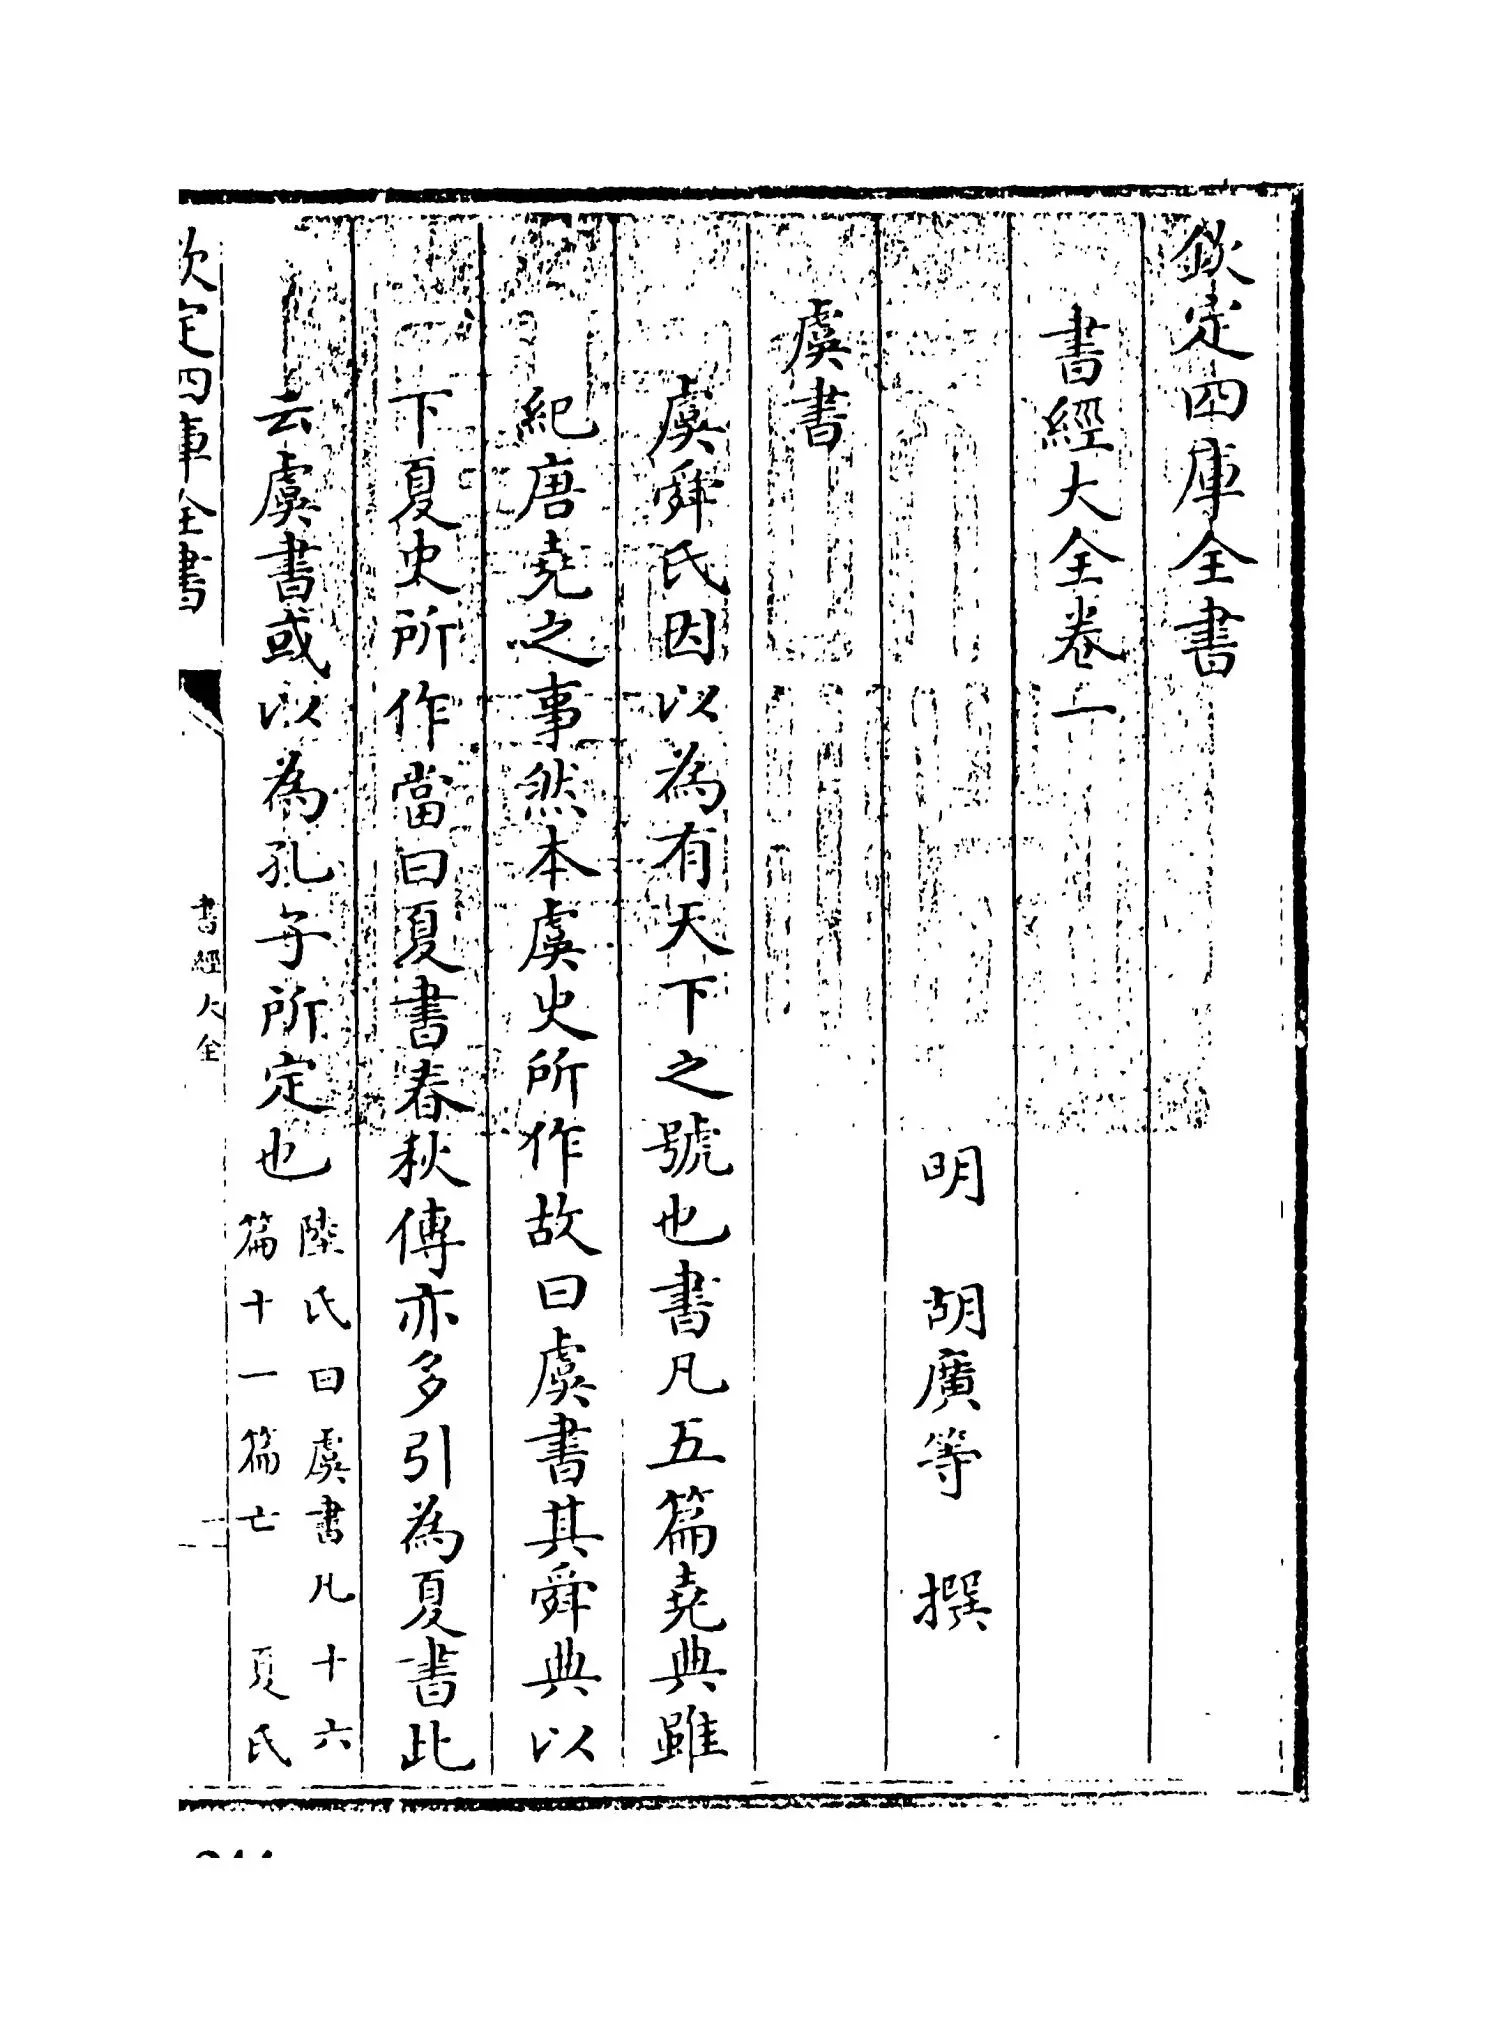 欽定四庫全書
書經大全卷一
明 胡廣等 撰
虞書
虞舜氏因以為有天下之號也書凡五篇堯典雖
紀唐堯之事然本虞史所作故曰虞書其舜典以
下夏史所作當曰夏書春秋傳亦多引為夏書此
云虞書或以為孔子所定也
陸氏曰虞書凡十六
篇十一篇亡 夏氏
欽定四庫全書
書經大全